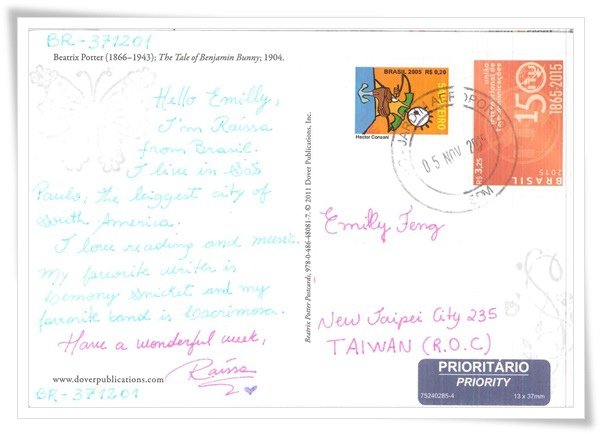 BR-371201
Beatrix Potter (1866–1943); The Tale of Benjamin Bunny; 1904.
Hello Emilly,
I'm Raíssa
from Brasil.
I live in São
Paulo, the biggest city of
South America.
I love reading and music.
My favorite writer is
Lemony Snicket and my
favorite band is Lacrimosa.
Have a wonderful week,
Raíssa
www.doverpublications.com
BR-371201
Beatrix Potter Postcards, 978-0-486-48081-7. © 2011 Dover Publications, Inc.
BRASIL 2005 R$ 0,20
SALVEIRO
Hector Consani
união
internacional de
telecomunicações
150
1865-2015
R$ 3,25
BRASIL
2015
05 NOV
Emilly Feng
New Taipei City 235
TAIWAN (R.O.C)
PRIORITÁRIO
PRIORITY
75240285-4
13 x 37mm